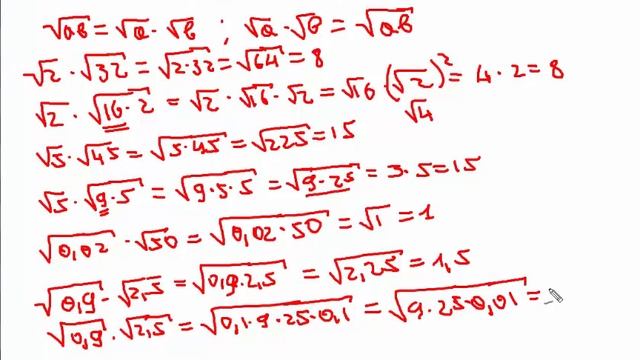 √ab = √a · √b ; √a · √b = √ab
√2 · √32 = √2·32 = √64 = 8
√2 · √16·2 = √2 · √16 · √2 = √16 · (√2)² = 4 · 2 = 8
√4
√5 · √45 = √5·45 = √225 = 15
√5 · √9·5 = √9·5·5 = √9·25 = 3·5 = 15
√0,02 · √50 = √0,02·50 = √1 = 1
√0,9 · √2,5 = √0,9·2,5 = √2,25 = 1,5
√0,9 · √2,5 = √0,1·9·25·0,1 = √9·25·0,01 =